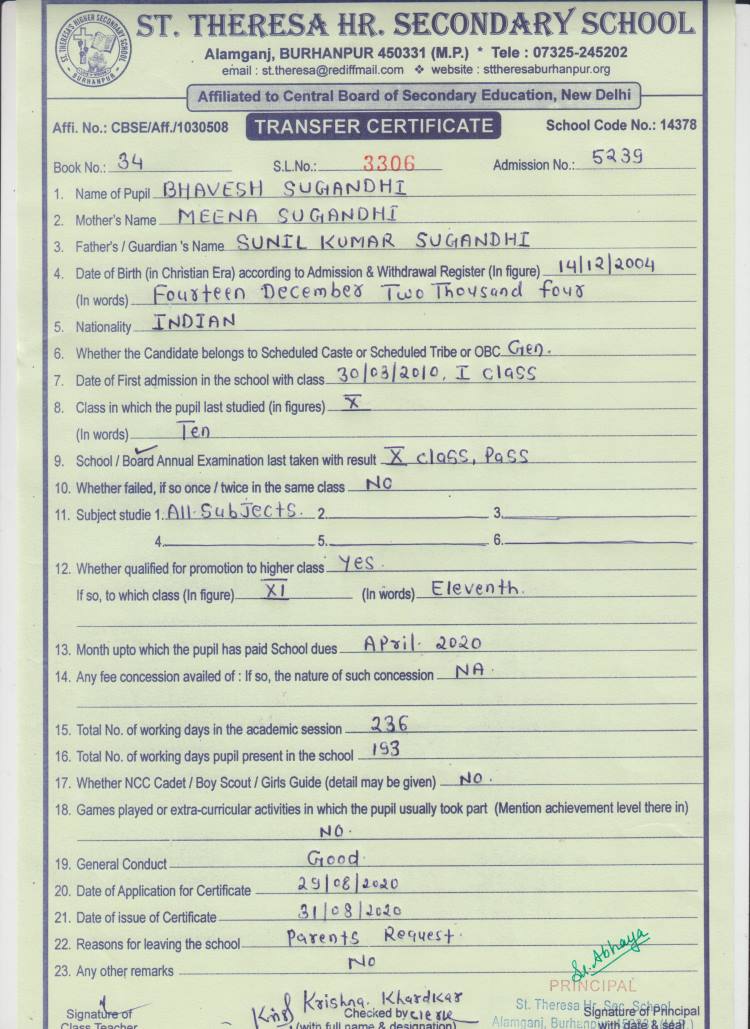 ST. THERESA HR. SECONDARY SCHOOL
Alamganj, BURHANPUR 450331 (M.P.) * Tele : 07325-245202
email : st.theresa@rediffmail.com ❖ website : sttheresaburhanpur.org
Affiliated to Central Board of Secondary Education, New Delhi
Affi. No.: CBSE/Aff./1030508 TRANSFER CERTIFICATE School Code No.: 14378
Book No.: 34 S.L.No.: 3306 Admission No.: 5239
1. Name of Pupil BHAVESH SUGANDHI
2. Mother's Name MEENA SUGANDHI
3. Father's / Guardian 's Name SUNIL KUMAR SUGANDHI
4. Date of Birth (in Christian Era) according to Admission & Withdrawal Register (In figure) 14/12/2004
(In words) Fourteen December Two Thousand four
5. Nationality INDIAN
6. Whether the Candidate belongs to Scheduled Caste or Scheduled Tribe or OBC Gen.
7. Date of First admission in the school with class 30/03/2010, I class
8. Class in which the pupil last studied (in figures) X
(In words) Ten
9. School / Board Annual Examination last taken with result X class, Pass
10. Whether failed, if so once / twice in the same class NO
11. Subject studie 1. All Subjects. 2. 3.
4. 5. 6.
12. Whether qualified for promotion to higher class Yes.
If so, to which class (In figure) XI (In words) Eleventh.
13. Month upto which the pupil has paid School dues April. 2020
14. Any fee concession availed of : If so, the nature of such concession NA.
15. Total No. of working days in the academic session 236
16. Total No. of working days pupil present in the school 193
17. Whether NCC Cadet / Boy Scout / Girls Guide (detail may be given) NO.
18. Games played or extra-curricular activities in which the pupil usually took part (Mention achievement level there in)
NO.
19. General Conduct Good.
20. Date of Application for Certificate 29/08/2020
21. Date of issue of Certificate 31/08/2020
22. Reasons for leaving the school Parents Request.
23. Any other remarks NO
Sr. Abhaya
PRINCIPAL
Krishna. Khardkar St. Theresa Hr. Sec. School
Signature of Checked by clerk Signature of Principal
Class Teacher (with full name & designation) Alamganj, with date & seal